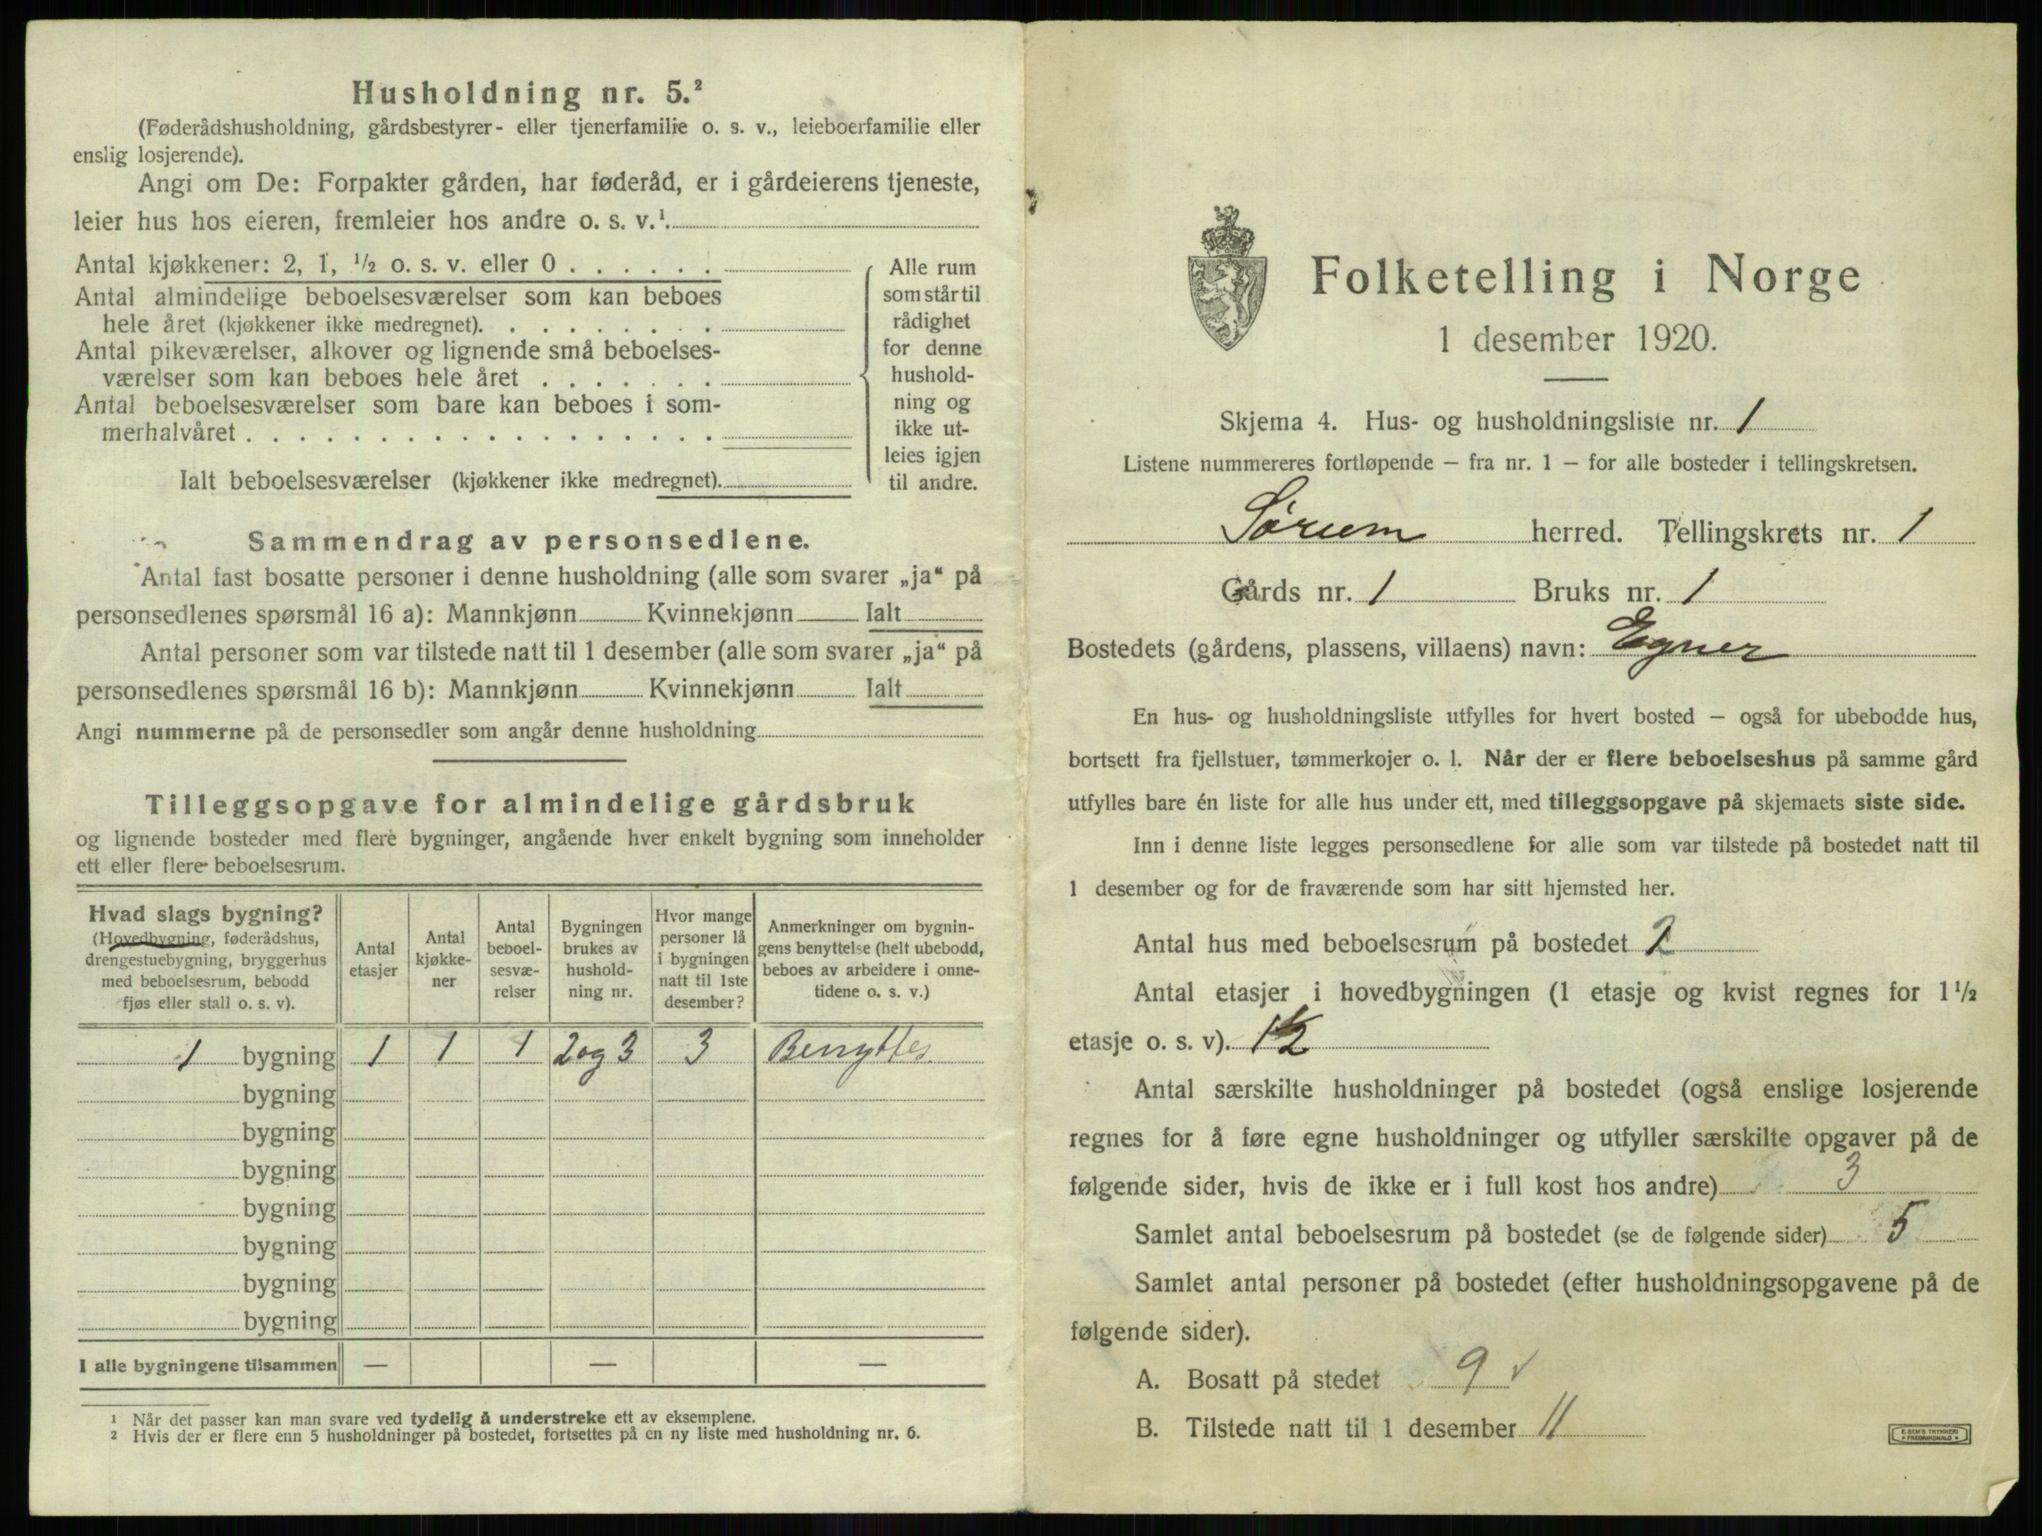 Husholdning nr. 5.²
(Føderådshusholdning, gårdsbestyrer- eller tjenerfamilie o. s. v., leieboerfamilie eller
enslig losjerende).
Angi om De: Forpakter gården, har føderåd, er i gårdeierens tjeneste,
leier hus hos eieren, fremleier hos andre o. s. v.¹.
Antal kjøkkener: 2, 1, ½ o. s. v. eller 0 . . . . . .
Antal almindelige beboelsesværelser som kan beboes
hele året (kjøkkener ikke medregnet). . . . . . . . .
Antal pikeværelser, alkover og lignende små beboelses-
værelser som kan beboes hele året . . . . . . .
Antal beboelsesværelser som bare kan beboes i som-
merhalvåret . . . . . . . . . . . . . . . . . .
Ialt beboelsesværelser (kjøkkener ikke medregnet).
Alle rum
som står til
rådighet
for denne
hushold-
ning og
ikke ut-
leies igjen
til andre.
Sammendrag av personsedlene.
Antal fast bosatte personer i denne husholdning (alle som svarer „ja“ på
personsedlenes spørsmål 16 a): Mannkjønn Kvinnekjønn Ialt
Antal personer som var tilstede natt til 1 desember (alle som svarer „ja“ på
personsedlenes spørsmål 16 b): Mannkjønn Kvinnekjønn Ialt
Angi nummerne på de personsedler som angår denne husholdning
Tilleggsopgave for almindelige gårdsbruk
og lignende bosteder med flere bygninger, angående hver enkelt bygning som inneholder
ett eller flere beboelsesrum.
Hvad slags bygning?
(Hovedbygning, føderådshus,
drengestuebygning, bryggerhus
med beboelsesrum, bebodd
fjøs eller stall o. s. v).
Antal
etasjer
Antal
kjøkke-
ner
Antal
beboel-
sesvæ-
relser
Bygningen
brukes av
hushold-
ning nr.
Hvor mange
personer lå
i bygningen
natt til 1ste
desember?
Anmerkninger om bygnin-
gens benyttelse (helt ubebodd,
beboes av arbeidere i onne-
tidene o. s. v.)
1 bygning 1 1 1 2 og 3 3 Benyttes
bygning
bygning
bygning
bygning
bygning
bygning
bygning
I alle bygningene tilsammen — — —
¹ Når det passer kan man svare ved tydelig å understreke ett av eksemplene.
² Hvis der er flere enn 5 husholdninger på bostedet, fortsettes på en ny liste med husholdning nr. 6.
Folketelling i Norge
1 desember 1920.
Skjema 4. Hus- og husholdningsliste nr. 1
Listene nummereres fortløpende – fra nr. 1 – for alle bosteder i tellingskretsen.
Sørum herred. Tellingskrets nr. 1
Gårds nr. 1 Bruks nr. 1
Bostedets (gårdens, plassens, villaens) navn: Egner
En hus- og husholdningsliste utfylles for hvert bosted – også for ubebodde hus,
bortsett fra fjellstuer, tømmerkojer o. l. Når der er flere beboelseshus på samme gård
utfylles bare én liste for alle hus under ett, med tilleggsopgave på skjemaets siste side.
Inn i denne liste legges personsedlene for alle som var tilstede på bostedet natt til
1 desember og for de fraværende som har sitt hjemsted her.
Antal hus med beboelsesrum på bostedet 2
Antal etasjer i hovedbygningen (1 etasje og kvist regnes for 1½
etasje o. s. v). 1½
Antal særskilte husholdninger på bostedet (også enslige losjerende
regnes for å føre egne husholdninger og utfyller særskilte opgaver på de
følgende sider, hvis de ikke er i full kost hos andre) 3
Samlet antal beboelsesrum på bostedet (se de følgende sider) 5
Samlet antal personer på bostedet (efter husholdningsopgavene på de
følgende sider).
A. Bosatt på stedet 9 ✓
B. Tilstede natt til 1 desember 11
E. SEM'S TRYKKERI
FREDRIKSHALD